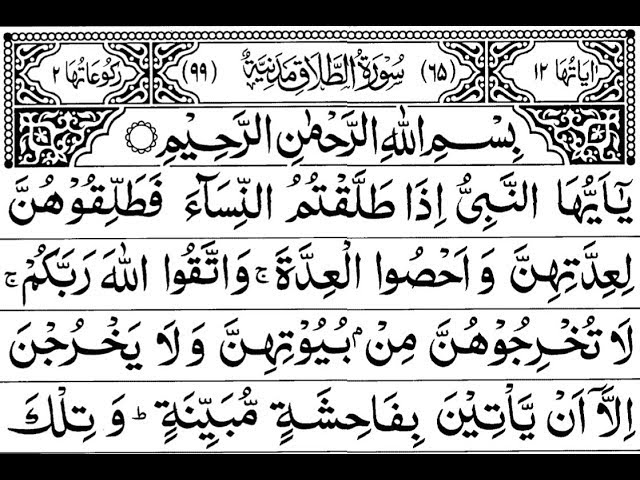 اٰيَاتُهَا ١٢ (٦٥) سُوْرَةُ الطَّلَاقِ مَدَنِيَّةٌ (٩٩) رُكُوْعَاتُهَا ٢
بِسْمِ اللّٰهِ الرَّحْمٰنِ الرَّحِيْمِ
يٰۤاَيُّهَا النَّبِىُّ اِذَا طَلَّقْتُمُ النِّسَآءَ فَطَلِّقُوْهُنَّ
لِعِدَّتِهِنَّ وَ اَحْصُوا الْعِدَّةَ ۚ وَاتَّقُوا اللّٰهَ رَبَّكُمْ ۚ
لَا تُخْرِجُوْهُنَّ مِنْۢ بُيُوْتِهِنَّ وَ لَا يَخْرُجْنَ
اِلَّاۤ اَنْ يَّاْتِيْنَ بِفَاحِشَةٍ مُّبَيِّنَةٍ ؕ وَ تِلْكَ